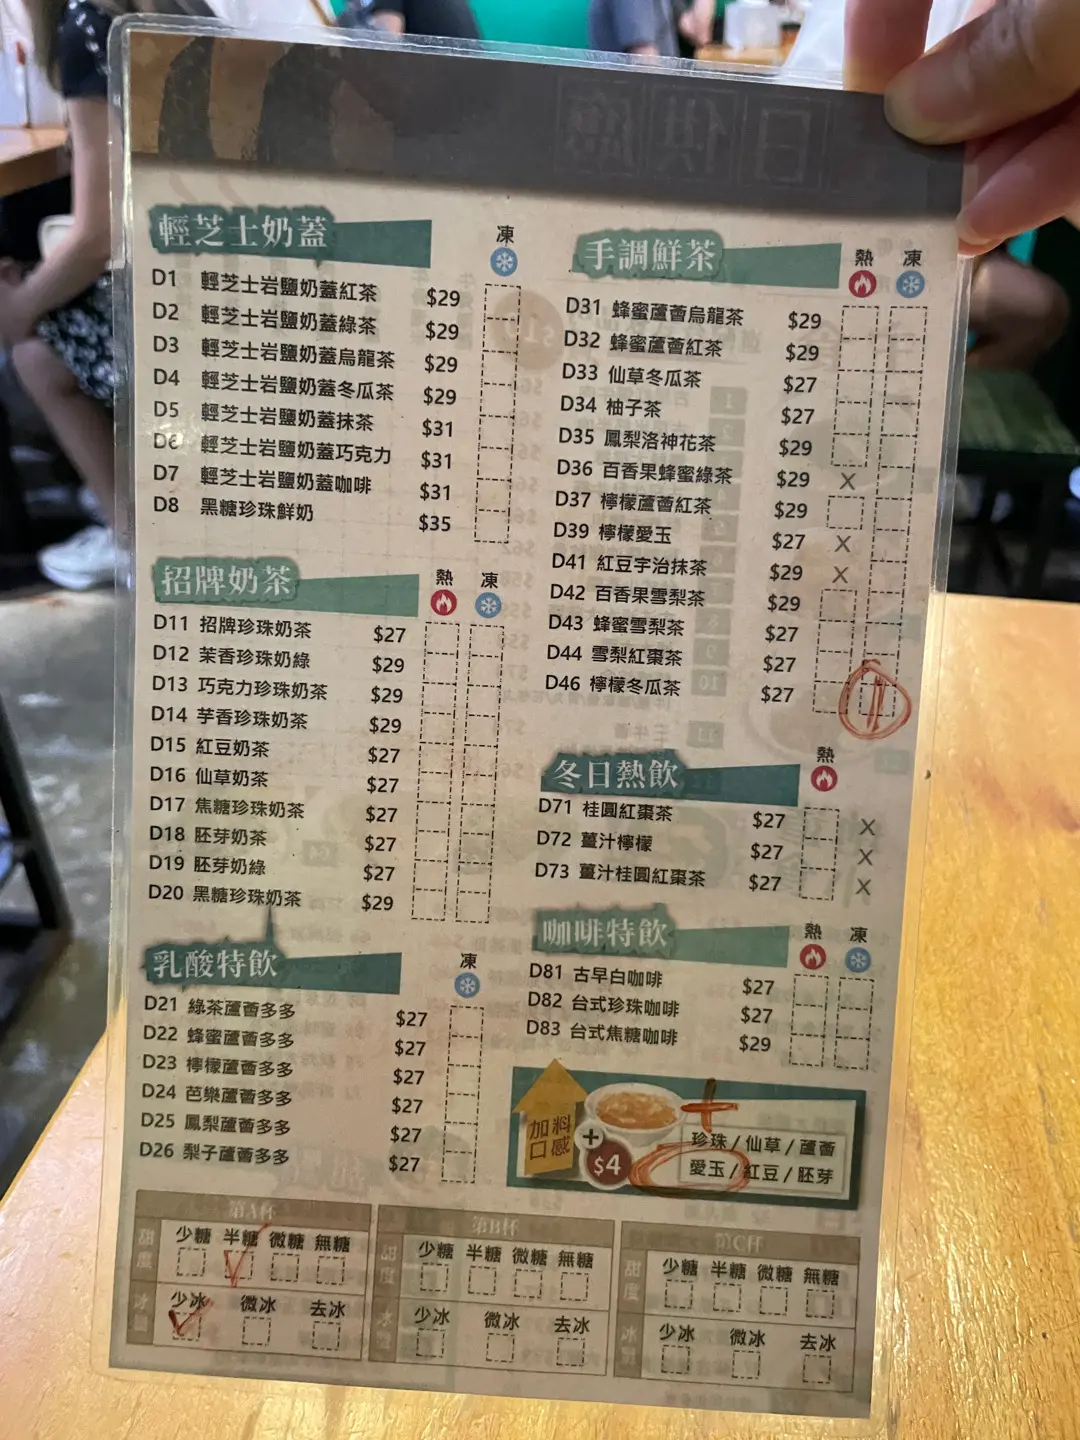 輕芝士奶蓋 凍
D1 輕芝士岩鹽奶蓋紅茶 $29
D2 輕芝士岩鹽奶蓋綠茶 $29
D3 輕芝士岩鹽奶蓋烏龍茶 $29
D4 輕芝士岩鹽奶蓋冬瓜茶 $29
D5 輕芝士岩鹽奶蓋抹茶 $31
D6 輕芝士岩鹽奶蓋巧克力 $31
D7 輕芝士岩鹽奶蓋咖啡 $31
D8 黑糖珍珠鮮奶 $35
招牌奶茶 熱 凍
D11 招牌珍珠奶茶 $27
D12 茉香珍珠奶綠 $29
D13 巧克力珍珠奶茶 $29
D14 芋香珍珠奶茶 $29
D15 紅豆奶茶 $27
D16 仙草奶茶 $27
D17 焦糖珍珠奶茶 $27
D18 胚芽奶茶 $27
D19 胚芽奶綠 $27
D20 黑糖珍珠奶茶 $29
乳酸特飲 凍
D21 綠茶蘆薈多多 $27
D22 蜂蜜蘆薈多多 $27
D23 檸檬蘆薈多多 $27
D24 芭樂蘆薈多多 $27
D25 鳳梨蘆薈多多 $27
D26 梨子蘆薈多多 $27
手調鮮茶 熱 凍
D31 蜂蜜蘆薈烏龍茶 $29
D32 蜂蜜蘆薈紅茶 $29
D33 仙草冬瓜茶 $27
D34 柚子茶 $27
D35 鳳梨洛神花茶 $29
D36 百香果蜂蜜綠茶 $29 X
D37 檸檬蘆薈紅茶 $29
D39 檸檬愛玉 $27 X
D41 紅豆宇治抹茶 $29 X
D42 百香果雪梨茶 $29
D43 蜂蜜雪梨茶 $27
D44 雪梨紅棗茶 $27
D46 檸檬冬瓜茶 $27
冬日熱飲 熱
D71 桂圓紅棗茶 $27 X
D72 薑汁檸檬 $27 X
D73 薑汁桂圓紅棗茶 $27 X
咖啡特飲 熱 凍
D81 古早白咖啡 $27
D82 台式珍珠咖啡 $27
D83 台式焦糖咖啡 $29
加料
口感
+
$4
+
珍珠/仙草/蘆薈
愛玉/紅豆/胚芽
第A杯
甜度 少糖 半糖 微糖 無糖
冰量 少冰 微冰 去冰
第B杯
甜度 少糖 半糖 微糖 無糖
冰量 少冰 微冰 去冰
第C杯
甜度 少糖 半糖 微糖 無糖
冰量 少冰 微冰 去冰